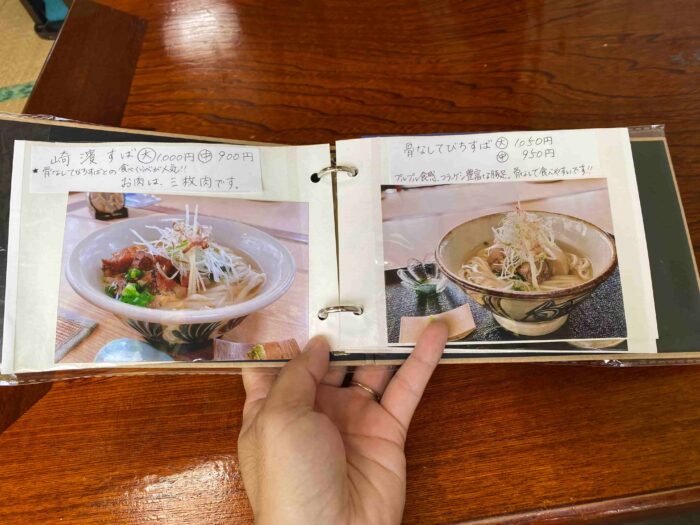 崎濱すば 大 1,000円 中 900円
★骨なしてびちすばとの食べくらべが人気!!
お肉は、三枚肉です。
骨なしてびちすば 大 1050円
中 950円
プルプル食感、コラーゲン豊富な豚足。骨なしで食べやすいです!!